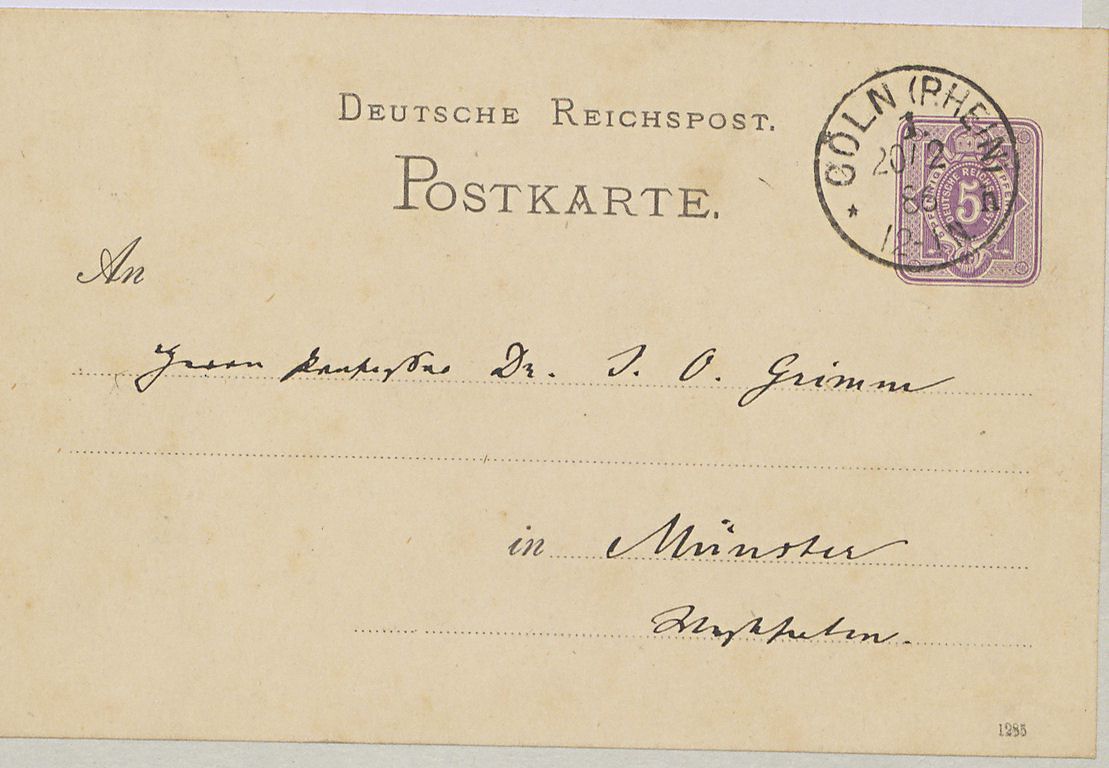 DEUTSCHE REICHSPOST.
POSTKARTE.
CÖLN (RHEIN)
1.
20/2
86
12-1N
5 PFENNIG
DEUTSCHE REICHSPOST
5
An
Herrn Professor Dr. J. O. Grimm
in Münster
Westfalen.
1285